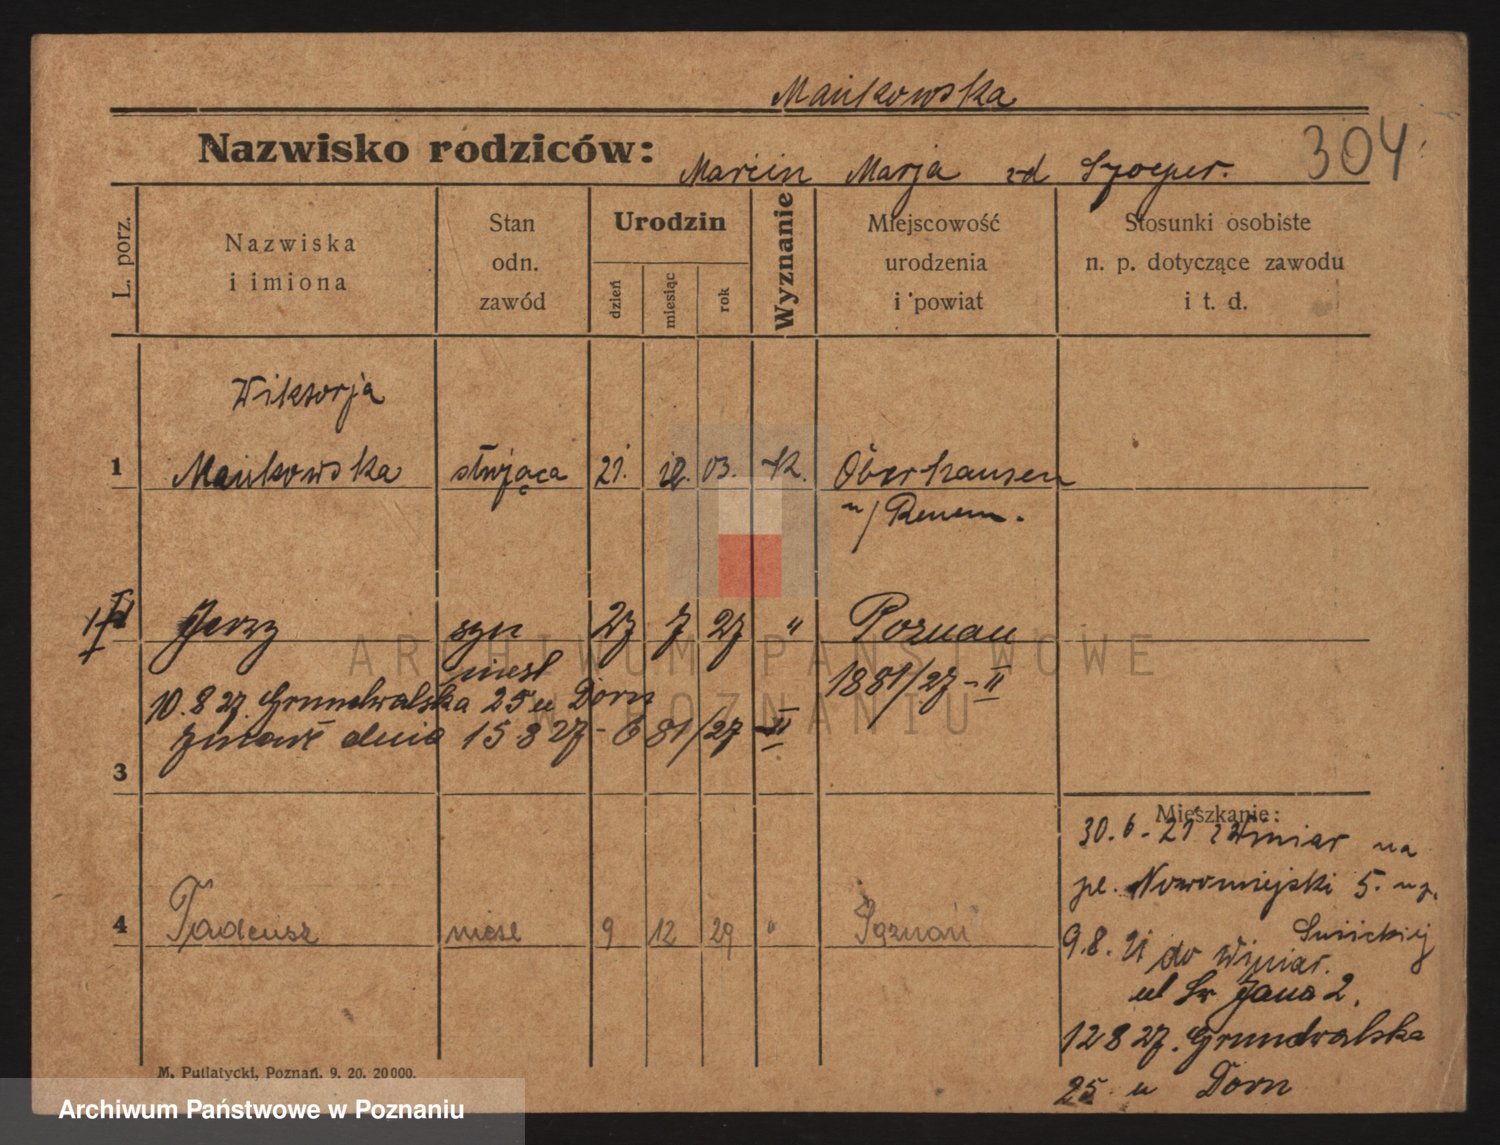 Mańkowska
Nazwisko rodziców: Marcin Marja zd Szoeper.
304
L. porz.
Nazwiska i imiona
Stan odn. zawód
Urodzin
dzień miesiąc rok
Wyznanie
Miejscowość urodzenia i powiat
Stosunki osobiste n. p. dotyczące zawodu i t. d.
Wiktorja
1 Mańkowska służąca 21. 12. 03. K. Oberhausen
n/ Renem.
Jerzy syn 27 7 27 " Poznań
nieśl 1881/27-II
10.8.27. Grunwalska 25 u Dorn
zmarł dnia 15 8 27 - 681/27-II
3
4 Tadeusz nieśl 9 12 29 " Poznań
Mieszkanie:
30.6.21 z Winiar na
pl. Nowomiejski 5.
9.8.21 do Winiar.
ul Św Jana 2.
12 8 27. Grunwalska
25 u Dorn
M. Putiatycki, Poznań. 9. 20. 20000.
ARCHIWUM PAŃSTWOWE
W POZNANIU
Archiwum Państwowe w Poznaniu